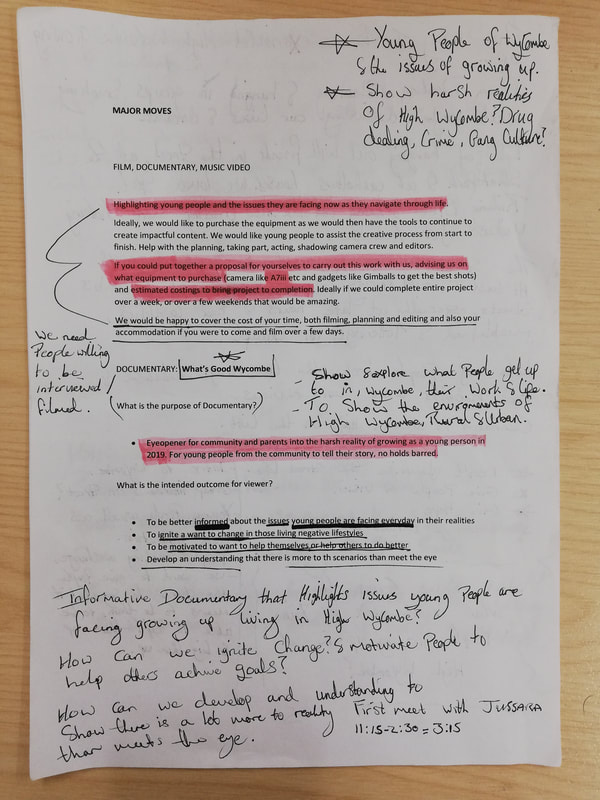 Young People of Wycombe
& the issues of growing up.
Show harsh realities
Of High Wycombe? Drug
dealing, Crime, Gang Culture?
MAJOR MOVES
FILM, DOCUMENTARY, MUSIC VIDEO
Highlighting young people and the issues they are facing now as they navigate through life.
Ideally, we would like to purchase the equipment as we would then have the tools to continue to
create impactful content. We would like young people to assist the creative process from start to
finish. Help with the planning, taking part, acting, shadowing camera crew and editors.
If you could put together a proposal for yourselves to carry out this work with us, advising us on
what equipment to purchase (camera like A7iii etc and gadgets like Gimballs to get the best shots)
and estimated costings to bring project to completion. Ideally if we could complete entire project
over a week, or over a few weekends that would be amazing.
We would be happy to cover the cost of your time, both filming, planning and editing and also your
accommodation if you were to come and film over a few days.
We need
People willing
to be
interviewed/
filmed.
DOCUMENTARY: What's Good Wycombe
(What is the purpose of Documentary?)
- Show & explore what People get up
to in, Wycombe, their Work & life.
- To Show the enviroments of
High Wycombe, Rural & Urban.
• Eyeopener for community and parents into the harsh reality of growing as a young person in
2019. For young people from the community to tell their story, no holds barred.
What is the intended outcome for viewer?
• To be better informed about the issues young people are facing everyday in their realities
• To ignite a want to change in those living negative lifestyles
• To be motivated to want to help themselves or help others to do better
• Develop an understanding that there is more to th scenarios than meet the eye
Informative Documentary that Highlights issues young People are
facing growing up living in High Wycombe?
How can we ignite Change? & motivate People to
help others achive goals?
How can we develop and understanding to
Show there is a lot more to reality
than meets the eye.
First meet with JUSSARA
11:15-2:30 = 3:15